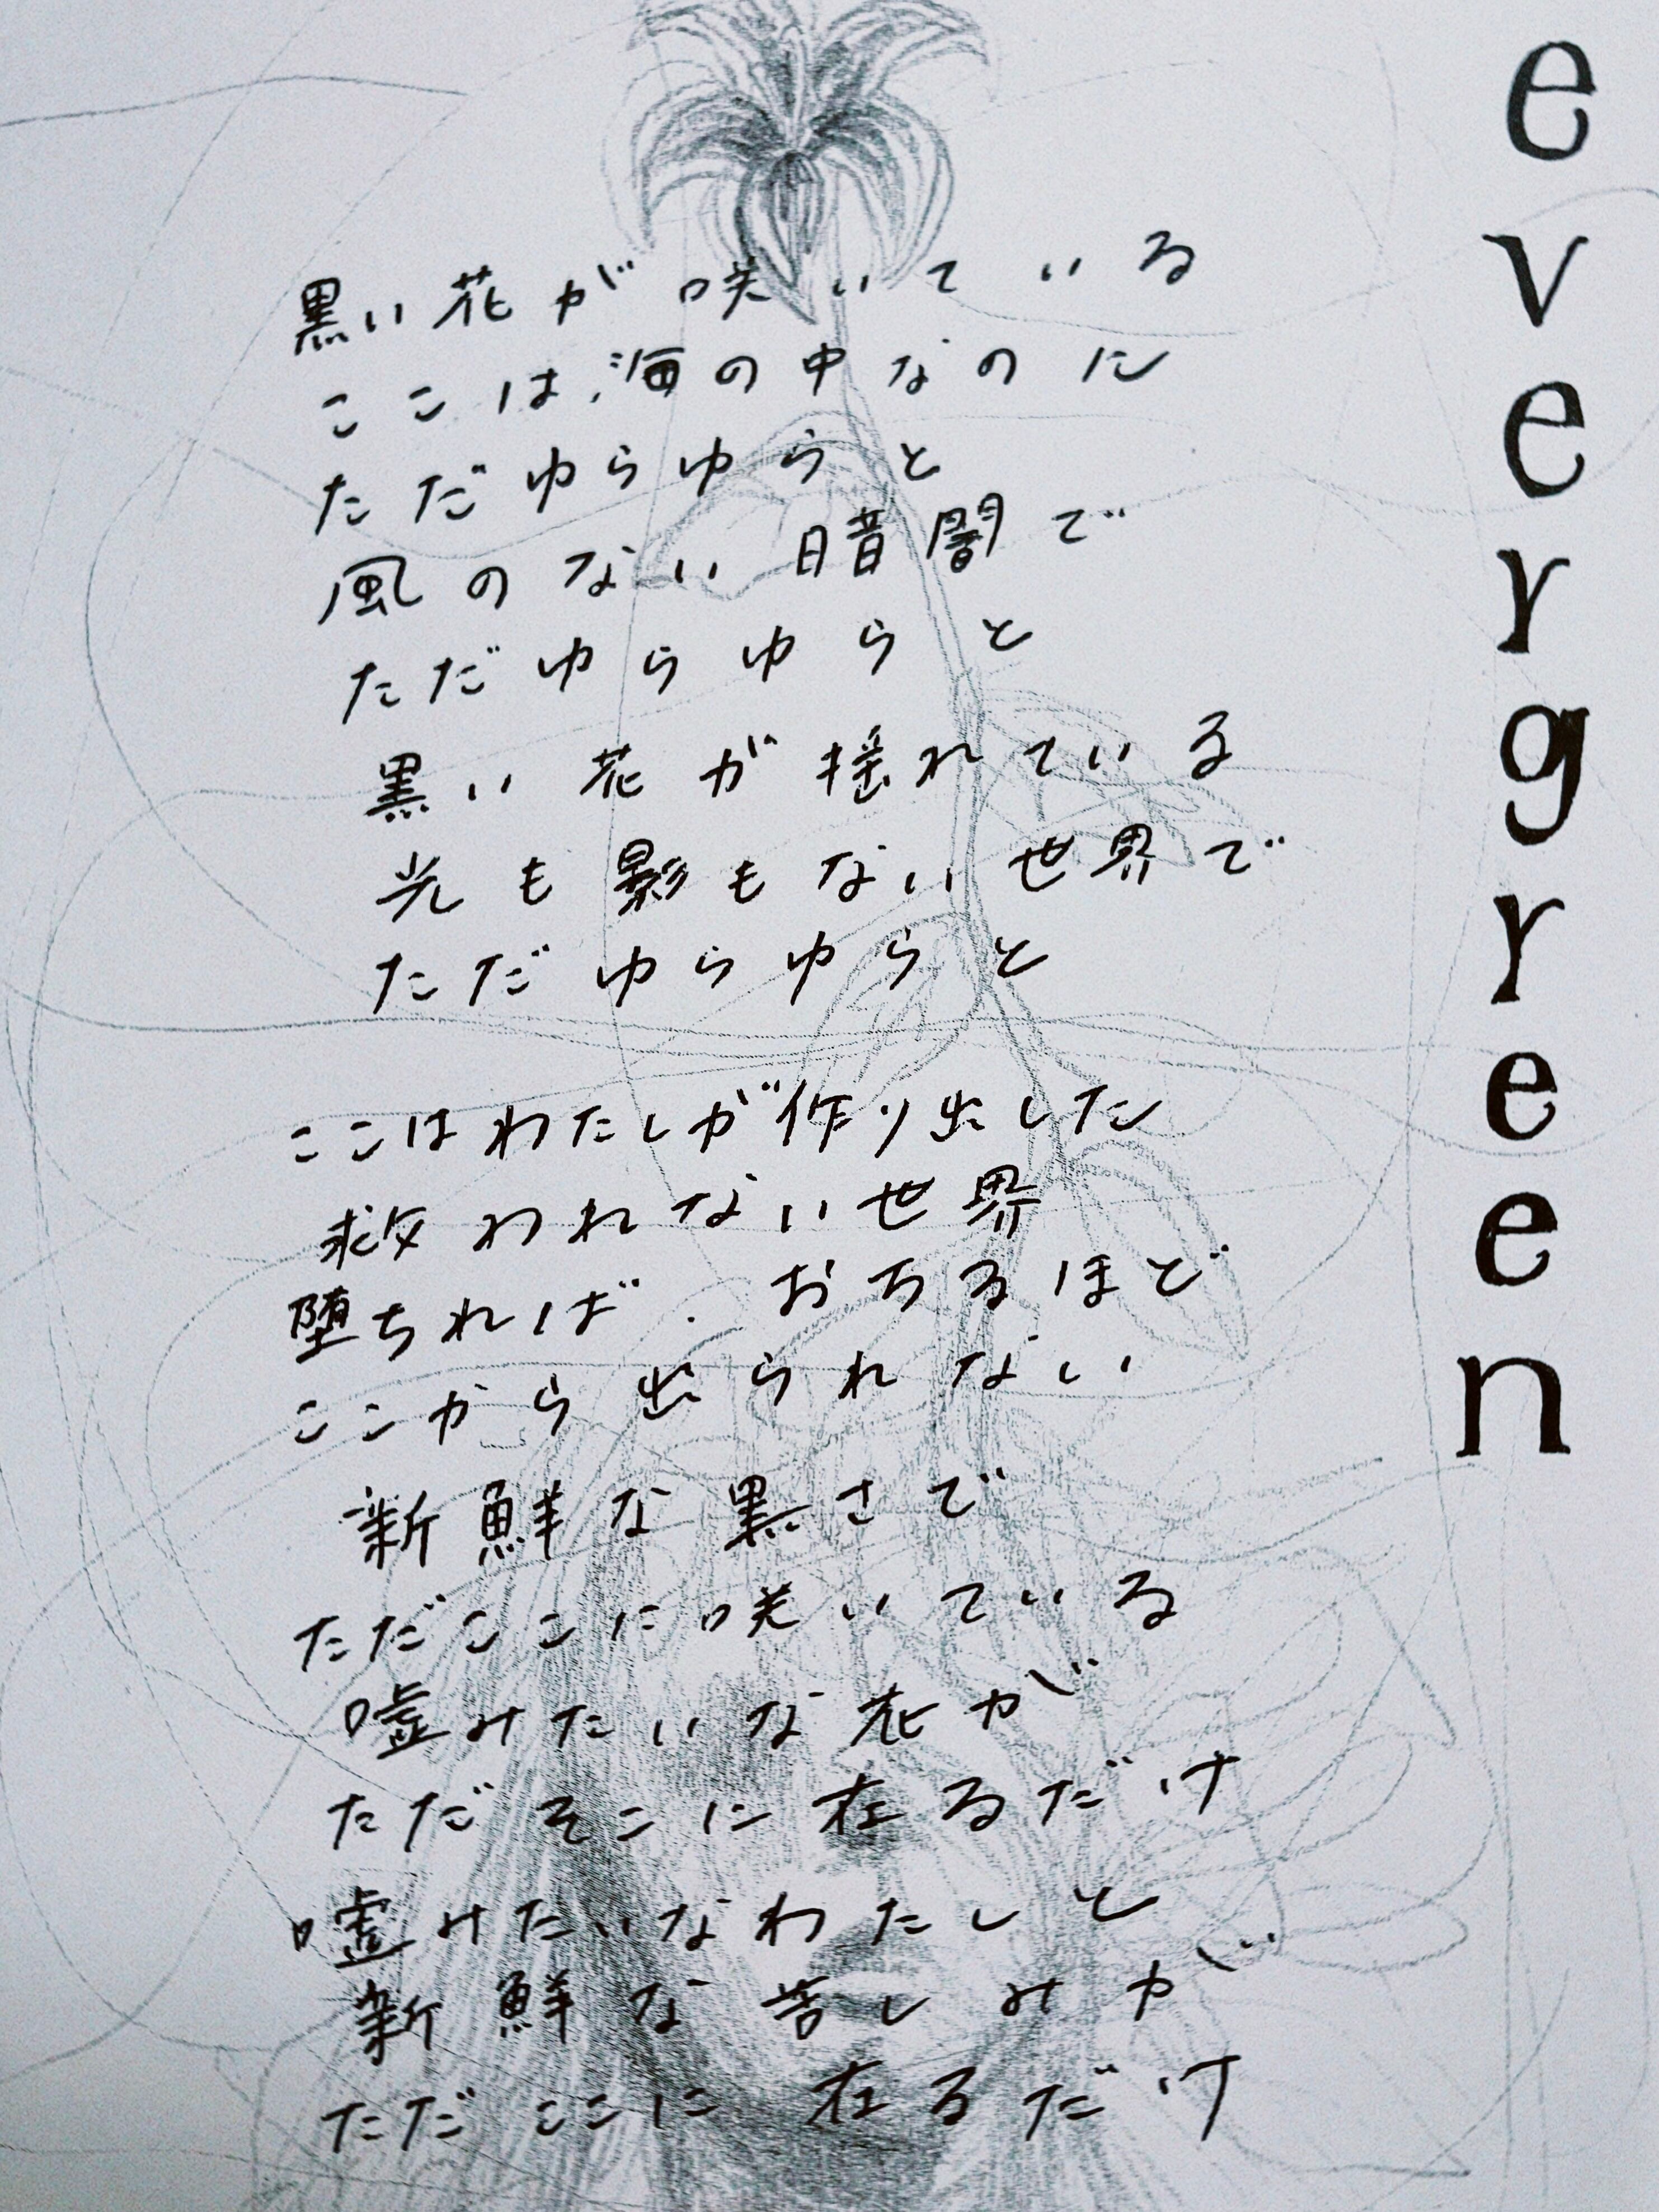 evergreen
黒い花が咲いている
ここは海の中なのに
ただゆらゆらと
風のない暗闇で
ただゆらゆらと
黒い花が揺れている
光も影もない世界で
ただゆらゆらと
ここはわたしが作り出した
救われない世界
堕ちれば.おちるほど
ここから出られない
新鮮な黒さで
ただここに咲いている
嘘みたいな花が
ただそこに在るだけ
嘘みたいなわたしと
新鮮な苦しみが
ただここに在るだけ